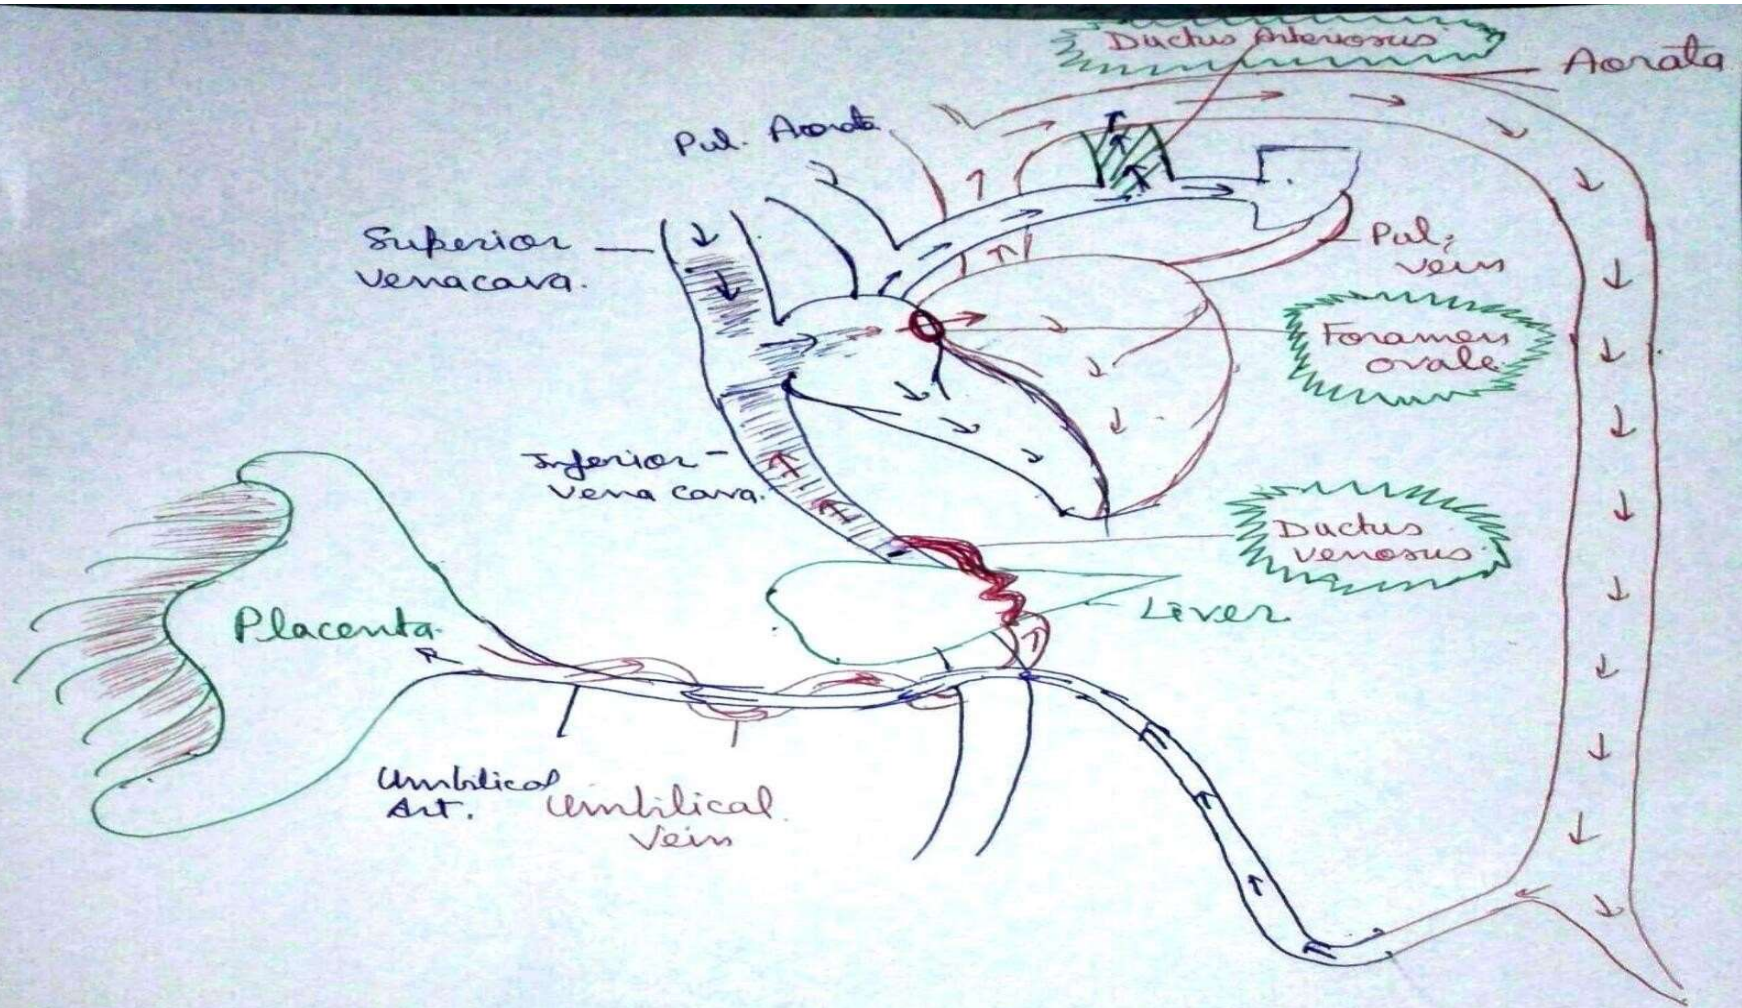 Ductus Arteriosus
Aorata
Pul. Aorata
Superior
venacava.
Pul;
vein
Foramen
ovale
Inferior
vena cava.
Ductus
venosus
Liver
Placenta
Umbilical
Art.
Umbilical
Vein